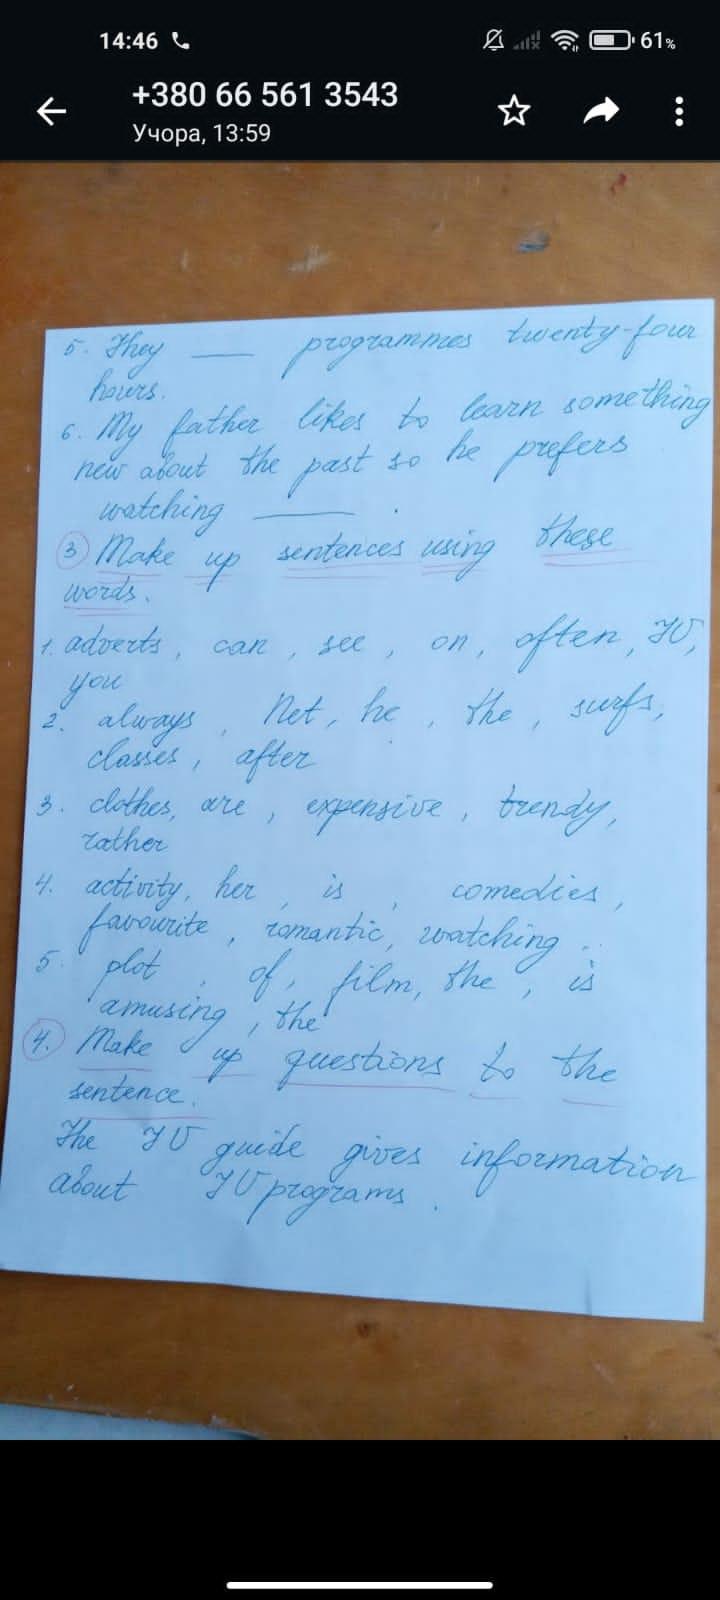 14:46
61%
+380 66 561 3543
Учора, 13:59
5. They ___ programmes twenty-four
hours.
6. My father likes to learn something
new about the past so he prefers
watching ___ .
3 Make up sentences using these
words.
1. adverts, can, see, on, often, TV,
you
2. always, Net, he, the, surfs,
classes, after
3. clothes, are, expensive, trendy,
rather
4. activity, her, is, comedies,
favourite, romantic, watching..
5. plot, of, film, the, is
amusing, the
4. Make up questions to the
sentence.
The TV guide gives information
about TV programs.